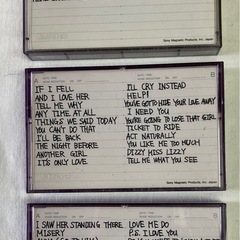 Sony Magnetic Products, Inc. Japan
A
B
IF I FELL
AND I LOVE HER
TELL ME WHY
ANY TIME AT ALL
THINGS WE SAID TODAY
YOU CAN'T DO THAT
I'LL BE BACK
THE NIGHT BEFORE
ANOTHER GIRL
IT'S ONLY LOVE.
I'LL CRY INSTEAD
HELP!
YOU'VE GOT TO HIDE YOUR LOVE AWAY
I NEED YOU
YOU'RE GOING TO LOSE THAT GIRL
TICKET TO RIDE
ACT NATURALLY
YOU LIKE ME TOO MUCH
DIZZY MISS LIZZY
TELL ME WHAT YOU SEE
Sony Magnetic Products, Inc. Japan
A
B
I SAW HER STANDING THERE
MISERY
LOVE ME DO
P.S. I LOVE YOU